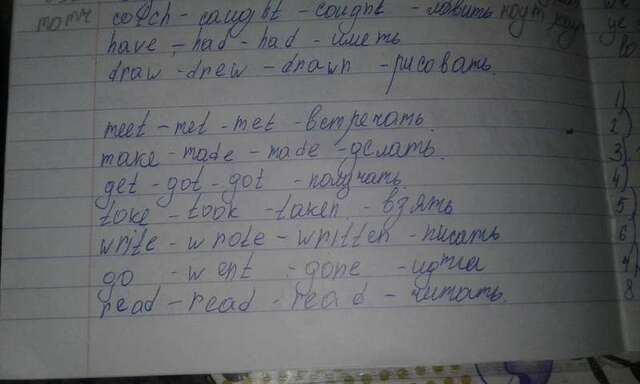 catch - caught - caught - ловить
have - had - had - иметь
draw - drew - drawn - рисовать
1)
meet - met - met - встречать 2)
make - made - made - делать. 3)
get - got - got - получать 4)
take - took - taken - взять 5)
write - wrote - written - писать 6)
go - went - gone - идти 4)
read - read - read - читать 8